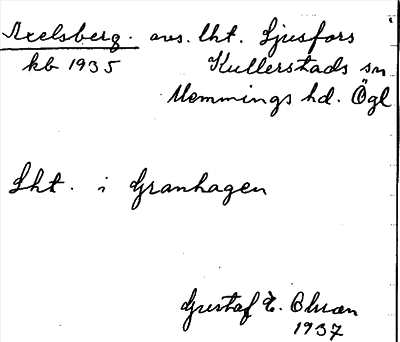 Axelsberg. avs. lht. Ljusfors
kb 1935 Kullerstads sn
Memmings hd. Ögl
Lht. i Granhagen
Gustaf E. Olsson
1937